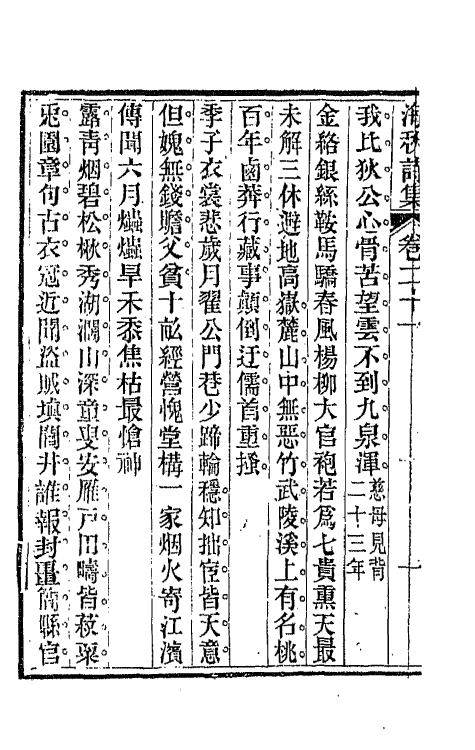 海秋詩集 卷二十一
我比狄公心骨苦望雲不到九泉渾慈母見背二十三年
金絡銀絲鞍馬驕春風楊柳大官袍若爲七貴熏天最
未解三休避地高嶽麓山中無惡竹武陵溪上有名桃
百年鹵莽行藏事顛倒迂儒首重搔
季子衣裳悲歲月翟公門巷少蹄輪穩知拙宦皆天意
但媿無錢贍父貧十畝經營愧堂構一家烟火寄江濱
傳聞六月爞爞旱禾黍焦枯最愴神
露靑烟碧松楸秀湖濶山深童叟安雁戶田疇皆菽粟
兎園章句古衣冠近聞盜賊塡閭井誰報封畺簡縣官